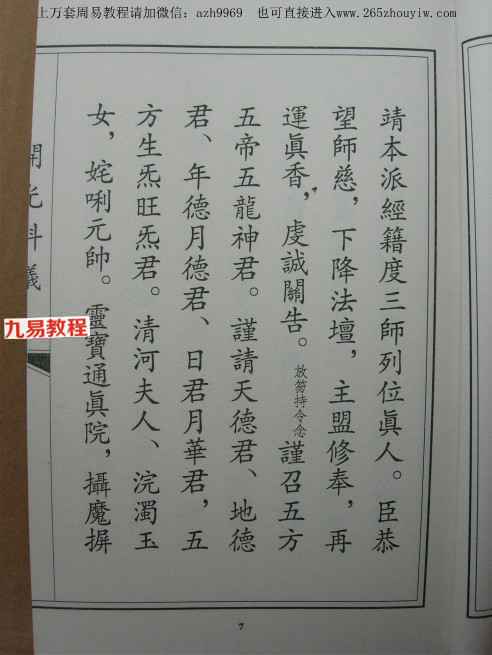 上万套周易教程请加微信：azh9969 也可直接进入www.265zhouyiw.com
靖本派經籍度三師列位眞人。臣恭
望師慈，下降法壇，主盟修奉，再
運眞香，虔誠關告。放笏持令念謹召五方
五帝五龍神君。謹請天德君、地德
君、年德月德君、日君月華君，五
方生炁旺炁君。清河夫人、浣濁玉
女，姹唎元帥。靈寶通眞院，攝魔摒
開光科儀
九易教程
7